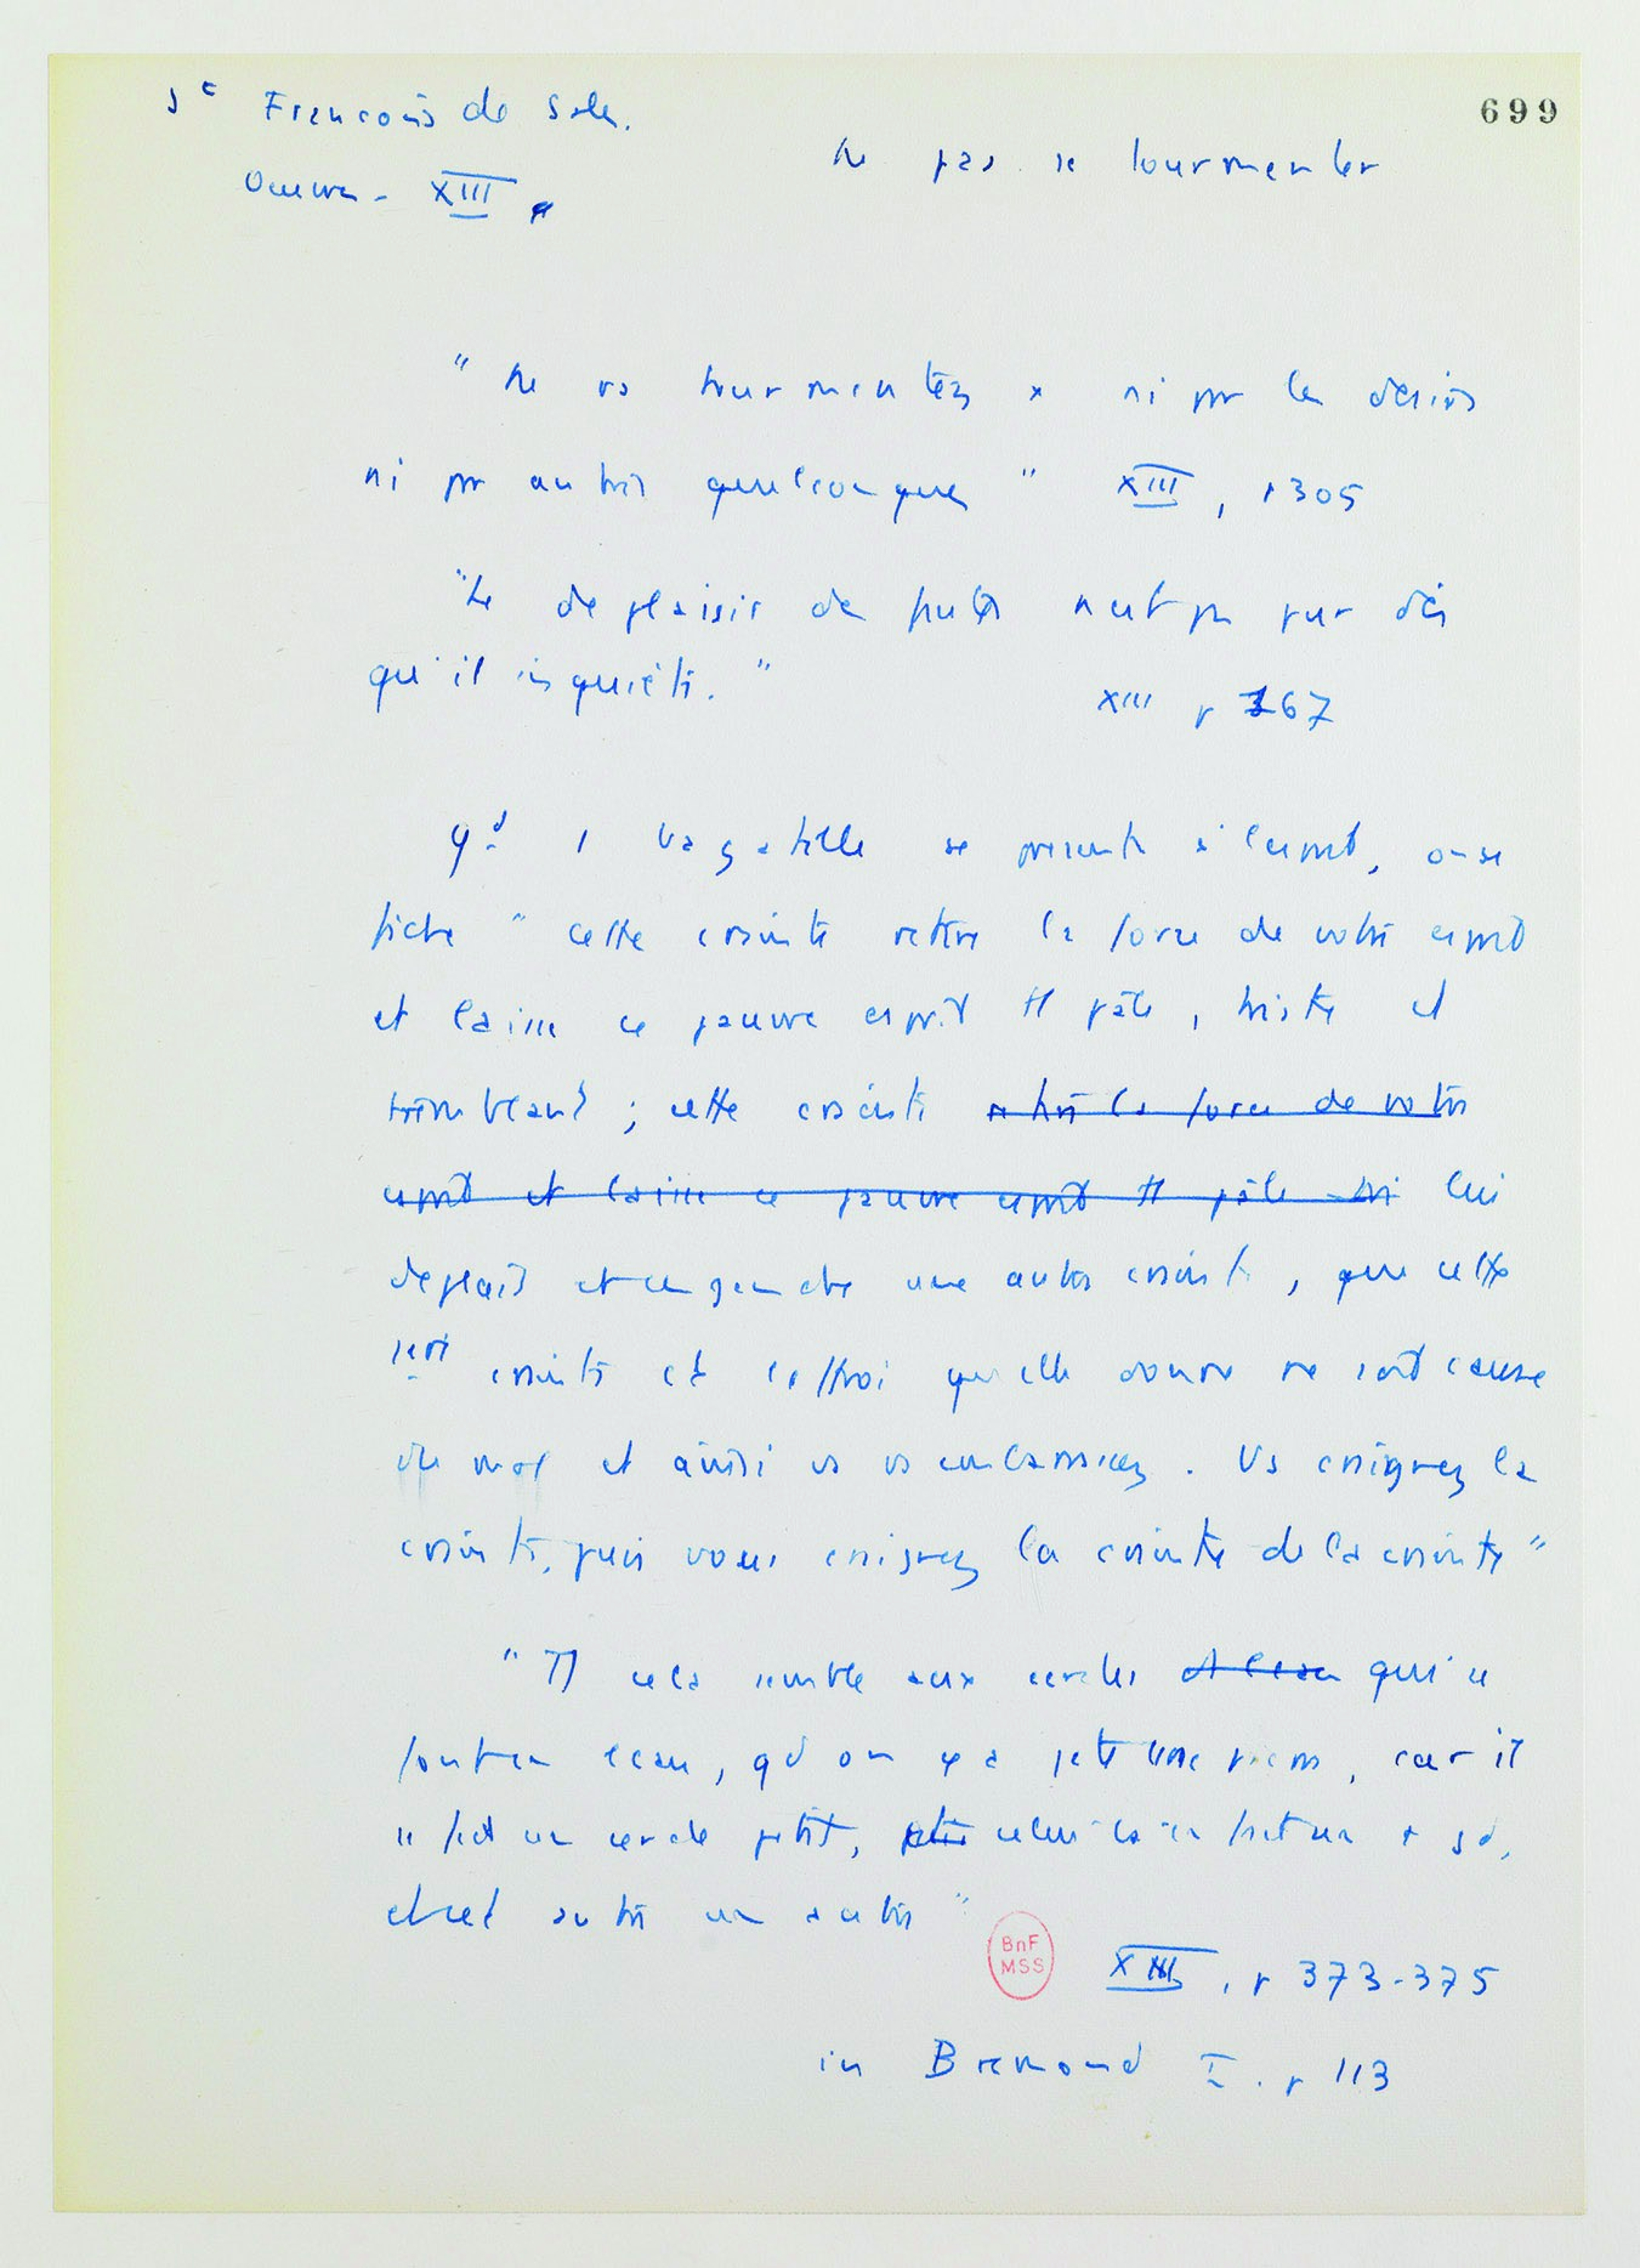 699
St François de Sales.
Oeuvres - XIII
Ne pas se tourmenter
" Ne vs tourmentez x ni pr les désirs
ni pr autres quelconques " XIII, p 305
"Le deplaisir de fautes n'est pas pur dès
qu'il inquiète."
XIII p 367
Qd 1 bagatelle se présente à l'esprit, on se
fiche " cette crainte retire la force de votre esprit
et laisse ce pauvre esprit tt pâle, triste et
tremblant ; cette crainte retire la force de votre
esprit et laisse ce pauvre esprit tt pâle tri lui
deplait et engendre une autre crainte, que cette
1ere crainte et l'effroi qu'elle donne ne soit cause
du mal et ainsi vs vs embarrassez. Vs craignez la
crainte, puis vous craignez la crainte de la crainte "
" Tt cela semble aux cercles qui se
font en l'eau, qd on y a jeté une pierre, car il
se fait un cercle petit, celui-là en fait un + gd,
et cet autre un autre "
BnF
MSS
XIII, p 373-375
in Bremond I. p 113